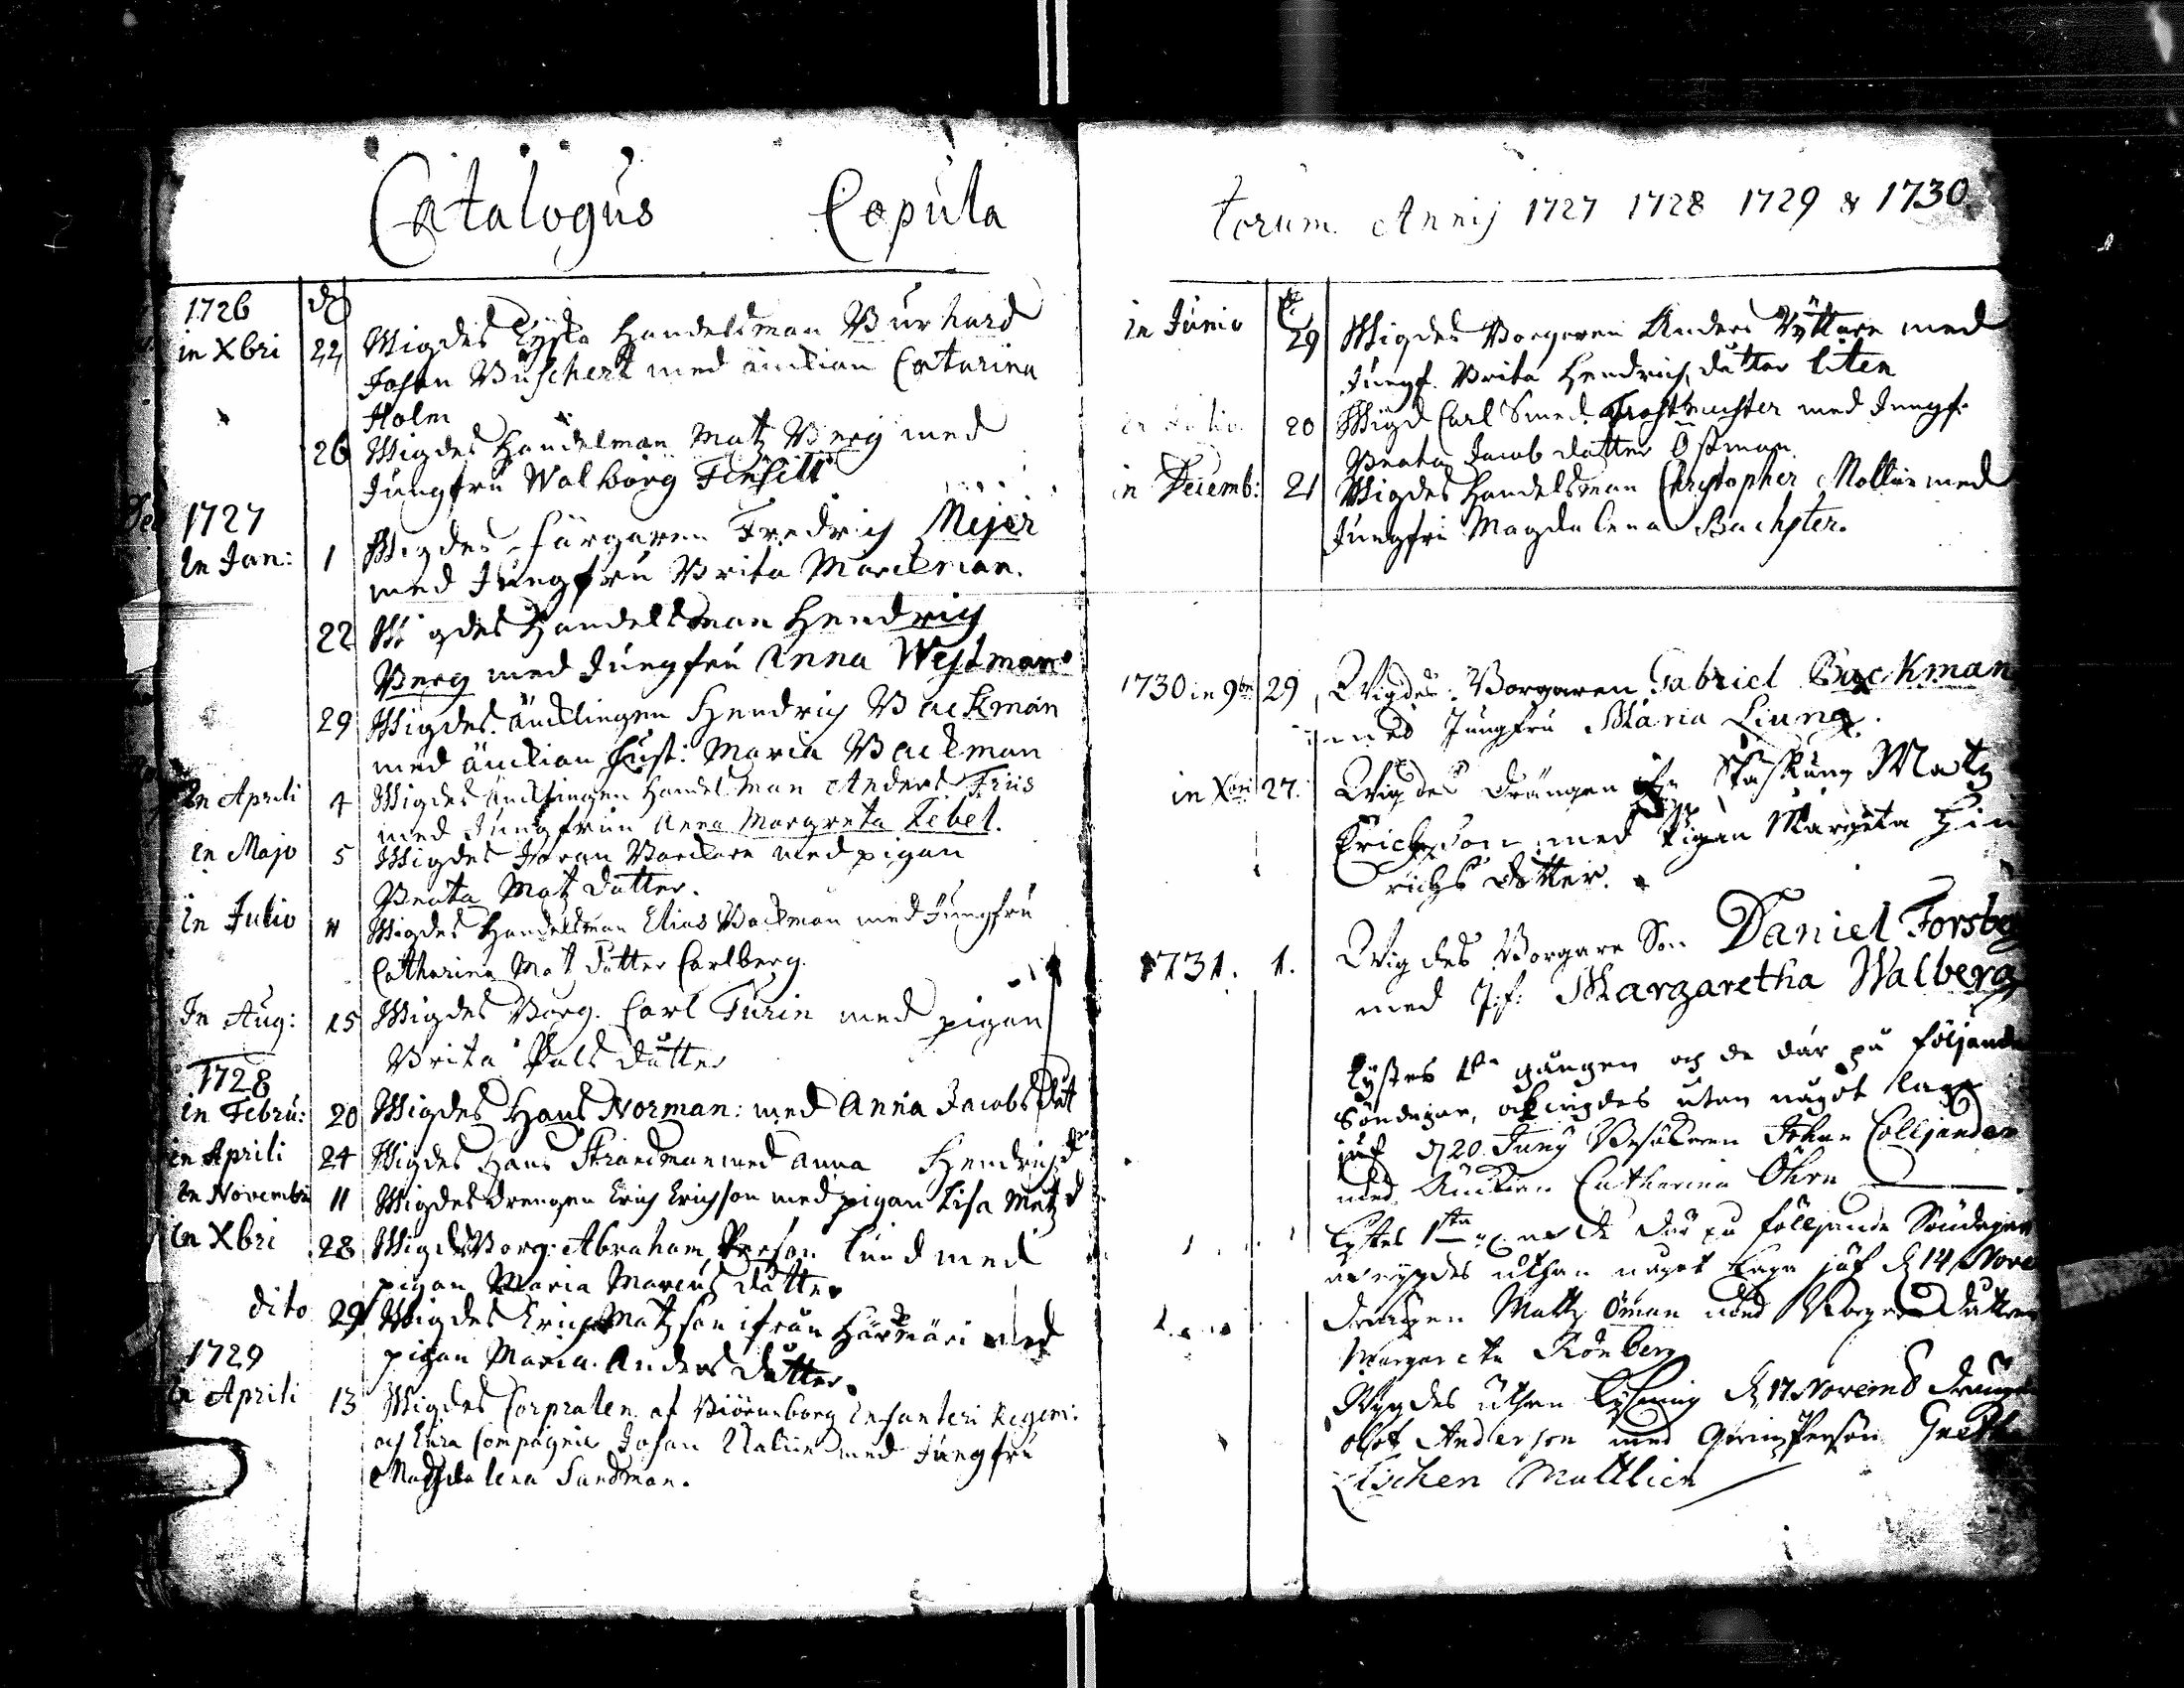 Catalogus Copula
1726
in Xbri 22 Wigdes Tyska Handelsman Burhard
Johan Buschert med änckian Catarina
Holm
26 Wigdes Handelman Matz Berg med
Jungfru Walborg
1727
In Jan: 1 Wigdes färgaren Fredrich Mejer
med Jungfru Brita Marckman.
22 Wigdes Handelsman Hendrich
Berg med Jungfru Anna Westman
29 Wigdes änklingen Hendrich Backman
med änckian hust: Maria Backman
In Aprili 4 Wigdes Encklingen Handelsman Anders Friis
med Jungfrun Anna Margreta Zebel.
in Majo 5 Wigdes med pigan
Beata Matz dåtter.
in Julio 11 Wigdes Handelsman Elias Backman med Jungfru
Catharina Mat dåtter Carlberg.
In Aug: 15 Wigdes Borg. Carl Turin med pigan
Brita Påls dåtter
1728
in Febru: 20 Wigdes Hans Norman: med Anna Jacobs dåt
in Aprili 24 Wigdes Hans Strandman med Anna Hendrichsd
in Novembri 11 Wigdes drengen Erich Erichson med pigan Lisa Matzd
in Xbri 28 Wigdes Borg: Abraham Person Lund med
pigan Maria Marcus dåtter
dito 29 Wigdes Erich Matzson ifrån med
pigan Maria Anders dåtter.
1729
in Aprili 13 Wigdes Corpralen af Biörneborg Infanteri Regem:
och Eura Compagnie Johan med Jungfru
Magdalena Sandman.
torum Annij 1727 1728 1729 & 1730
in Junio 29 Wigdes Borgaren Anders Ryttare med
Jungf. Brita Hendrichs dåtter Liten
20 Wigd Carl Smed med Jungf.
Beata Jacob dåtter Östman
in Decemb: 21 Wigdes Handelsman Christopher Mollin med
Jungfru Magdalena Bachster.
1730 in 9br 29 Wigdes Borgaren Gabriel Backman
med Jungfru Maria Liung.
in Xbri 27. Wigdes drängen Matz
Erichsson med Pigan Margeta Hin
richs dotter.
1731. 1. Wigdes Borgare Son Daniel Forsberg
med J:f: Margaretha Walberg
Lystes 1sta gången och de där på följande
Söndagar, och wigdes utan något laga
jäf d 20 Junij Johan Colliander
med Änckan Catharina Öhrn
Lystes 1sta de där på följjande Söndagar
wigdes uthan något laga jäf d 14 Nove
drängen Mattz Öman med Borgare dåtteren
Margareta Rönberg
Wigdes uthan lysning d 17 Novemb dräng
Olof Anderson med Qwins Person Greth
Lischen Mattlien